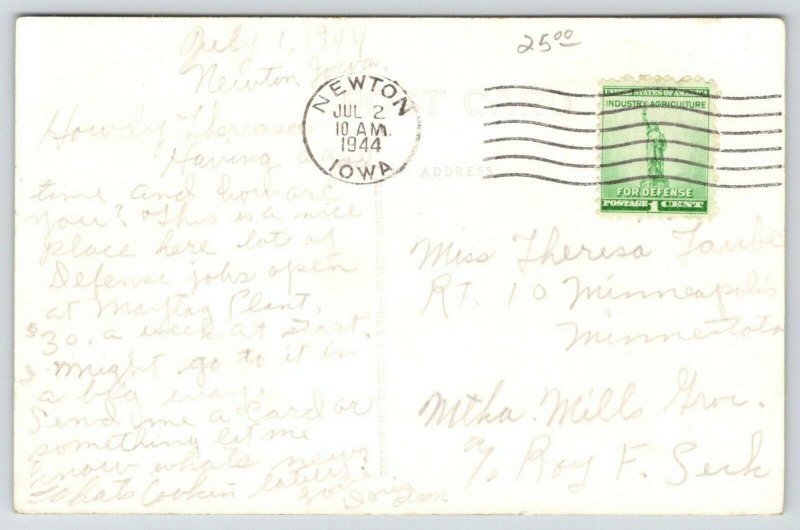 July 1, 1944
Newton Iowa.
Howdy Theresa
Having a
time and how are
you? This is a nice
place here lots of
Defense jobs open
at Maytag Plant.
$30. a week at start.
I might go to it in
a big way.
Send me a card or
something let me
know whats new
Whats Cookin later
Love
Doris
Olson
2500
NEWTON
JUL 2
10 AM.
1944
IOWA
UNITED STATES OF AMERICA
INDUSTRY-AGRICULTURE
FOR DEFENSE
POSTAGE 1 CENT
ADDRESS
Miss Theresa
RT. 10 Minneapolis
Minnestota
Mtka. Mills Groc.
c/o Roy F. Seck